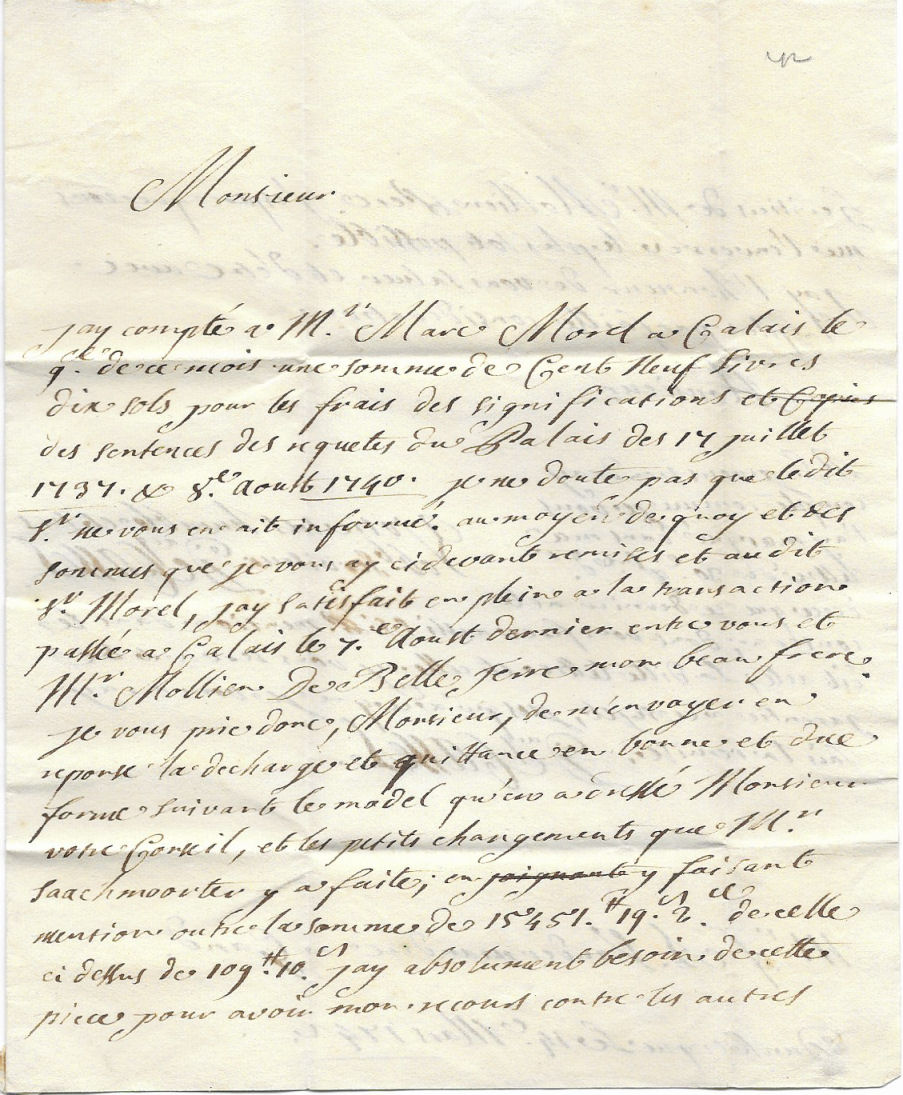 Monsieur
jay compté a M.r Marc Morel a Calais le
9.e de ce mois une somme de Cent Neuf Livres
dix sols pour les frais des significations et Copies
des sentences des requetes du Palais des 17 juillet
1737. & 8.e Aoust 1740. je ne doute pas que ledit
S.r ne vous en ait informé. au moyen de quoy et des
sommes que je vous ay cidevant remises et audit
S.r Morel, jay satisfait en plein a la transaction
passée a Calais le 7.e Aoust dernier entre vous et
M.r Mollien De Belle Terre mon beau frere.
je vous prie donc, Monsieur, de m'envoyer en
reponse la decharge et quittance en bonne et due
forme suivant le model qu'en a dressé Monsieur
votre Conseil, et les petits changements que M.r
Saachmoorter y a faite; en joignant y faisant
mention outre la somme de 15451.tt 19.s 2.d de celle
ci dessus de 109.tt 10.s jay absolument besoin de cette
piece pour avoir mon recours contre les autres